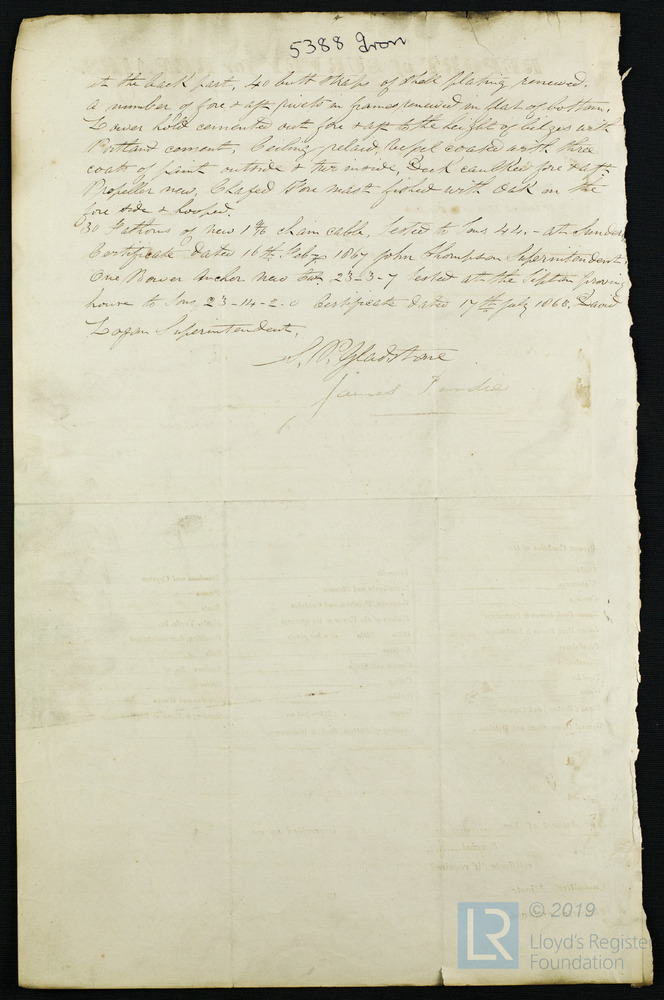 5388 Iron
at the back part, 40 butt straps of shell plating renewed.
a number of fore & aft rivets in frames renewed in flat of bottom.
Lower hold cemented out fore & aft to the height of bilges with
Portland cement, Ceiling relaid, Vessel coated with three
coats of paint outside & two inside, Deck caulked fore & aft.
Propeller new, Chafed Fore mast fished with Oak on the
fore side & hooped.
30 Fathoms of new 1 9/16 chain cable, tested to Tons 44.- at Sunder
Certificate dated 16th Feby 1867 John Thompson Superintendent
One Bower Anchor new 23-3-7 tested at the Tipton proving
house to Tons 23-14-2-0 Certificate dated 17th July 1868. David
Logan Superintendent.
S. P. Gladstone
James
© 2019
LR
Lloyd's Register
Foundation